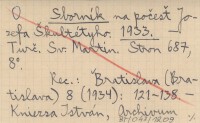 O Sborník na počesť Jo-
sefa Škultétyho. 1933.—
Turč. Sv. Martin. Stron 687,
8°.
Rec.: Bratislava (Bra-
tislava) 8 (1934): 121-138.—
Kniezsa István, Archivum